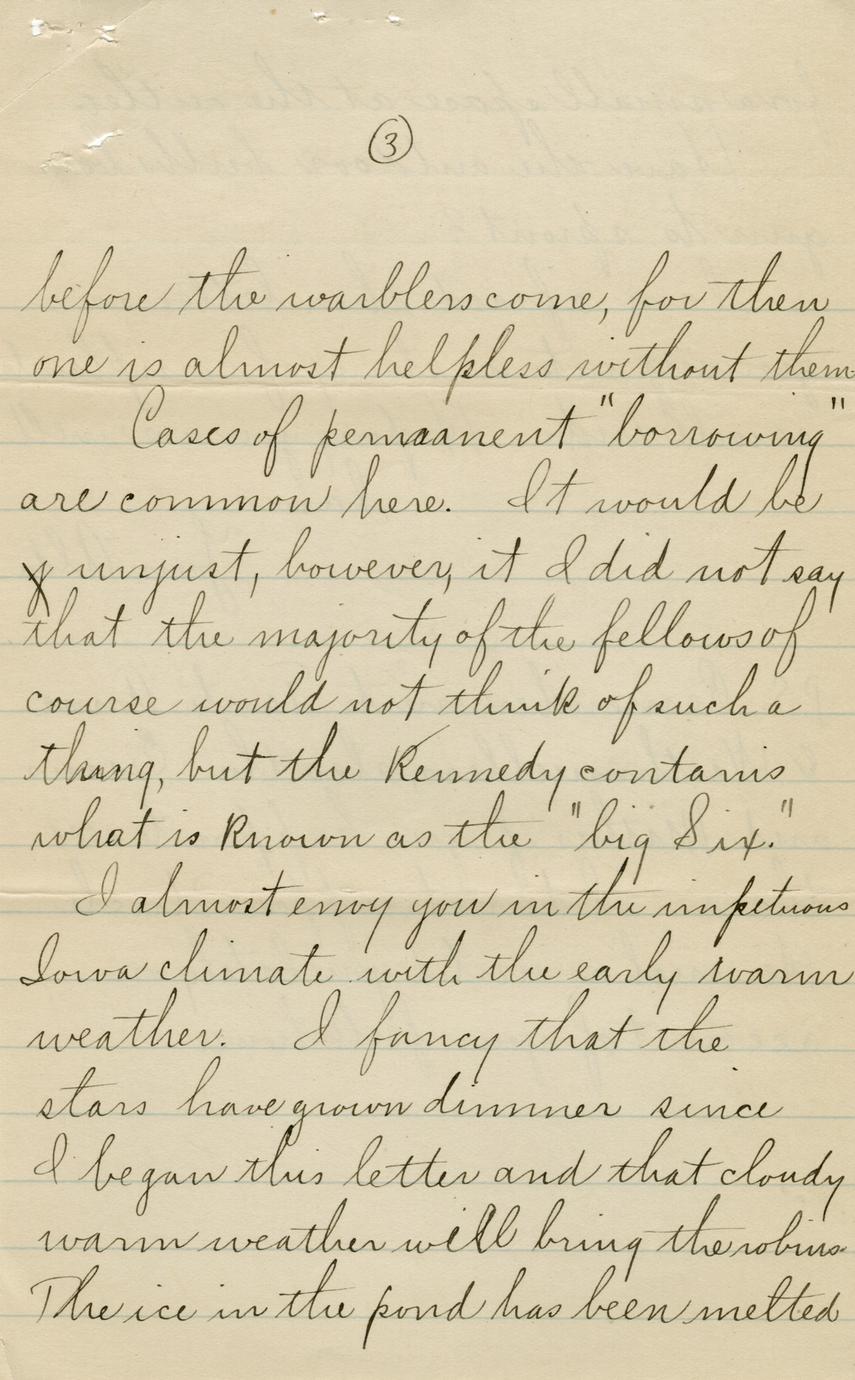 3
before the warblers come, for then
one is almost helpless without them
Cases of permaanent "borrowing"
are common here. It would be
unjust, however, it I did not say
that the majority of the fellows of
course would not think of such a
thing, but the Kennedy contains
what is known as the "big Six."
I almost envy you in the impetuous
Iowa climate with the early warm
weather. I fancy that the
stars have grown dimmer since
I began this letter and that cloudy
warm weather will bring the robins.
The ice in the pond has been melted